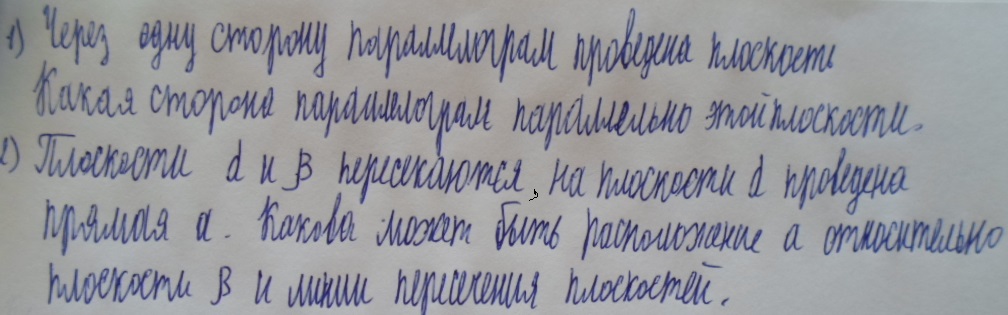 1) Через одну сторону параллелограм проведена плоскость
Какая сторона параллелограм параллельно этой плоскости.
2) Плоскости α и β пересекаются, на плоскости α проведена
прямая a. Какова может быть расположение a относительно
плоскости β и линии пересечения плоскостей.